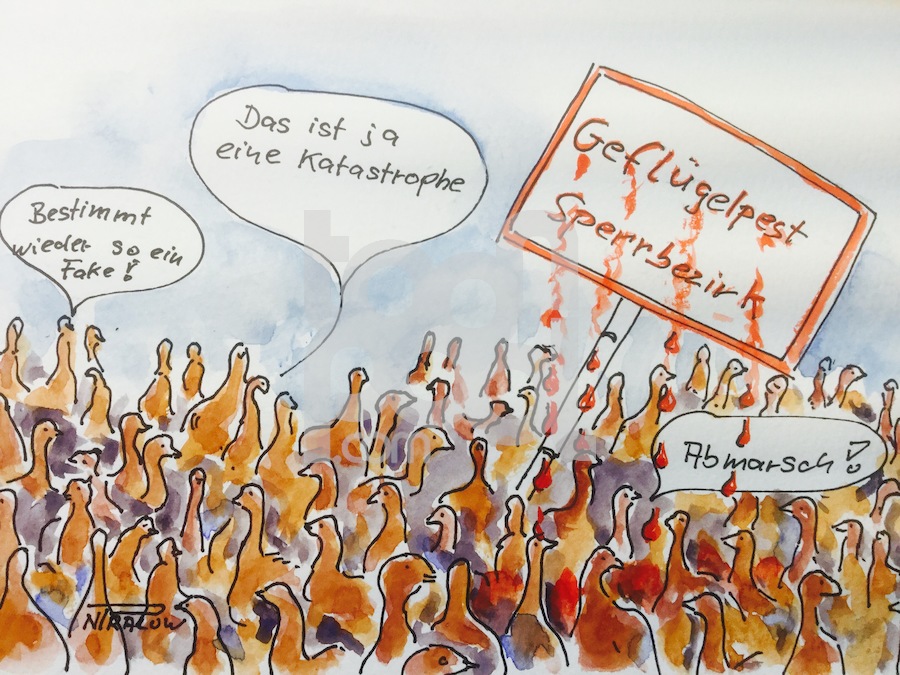 Das ist ja
eine Katastrophe
Bestimmt
wieder so ein
Fake!
Geflügelpest
Sperrbezirk
Abmarsch!
toon
.com